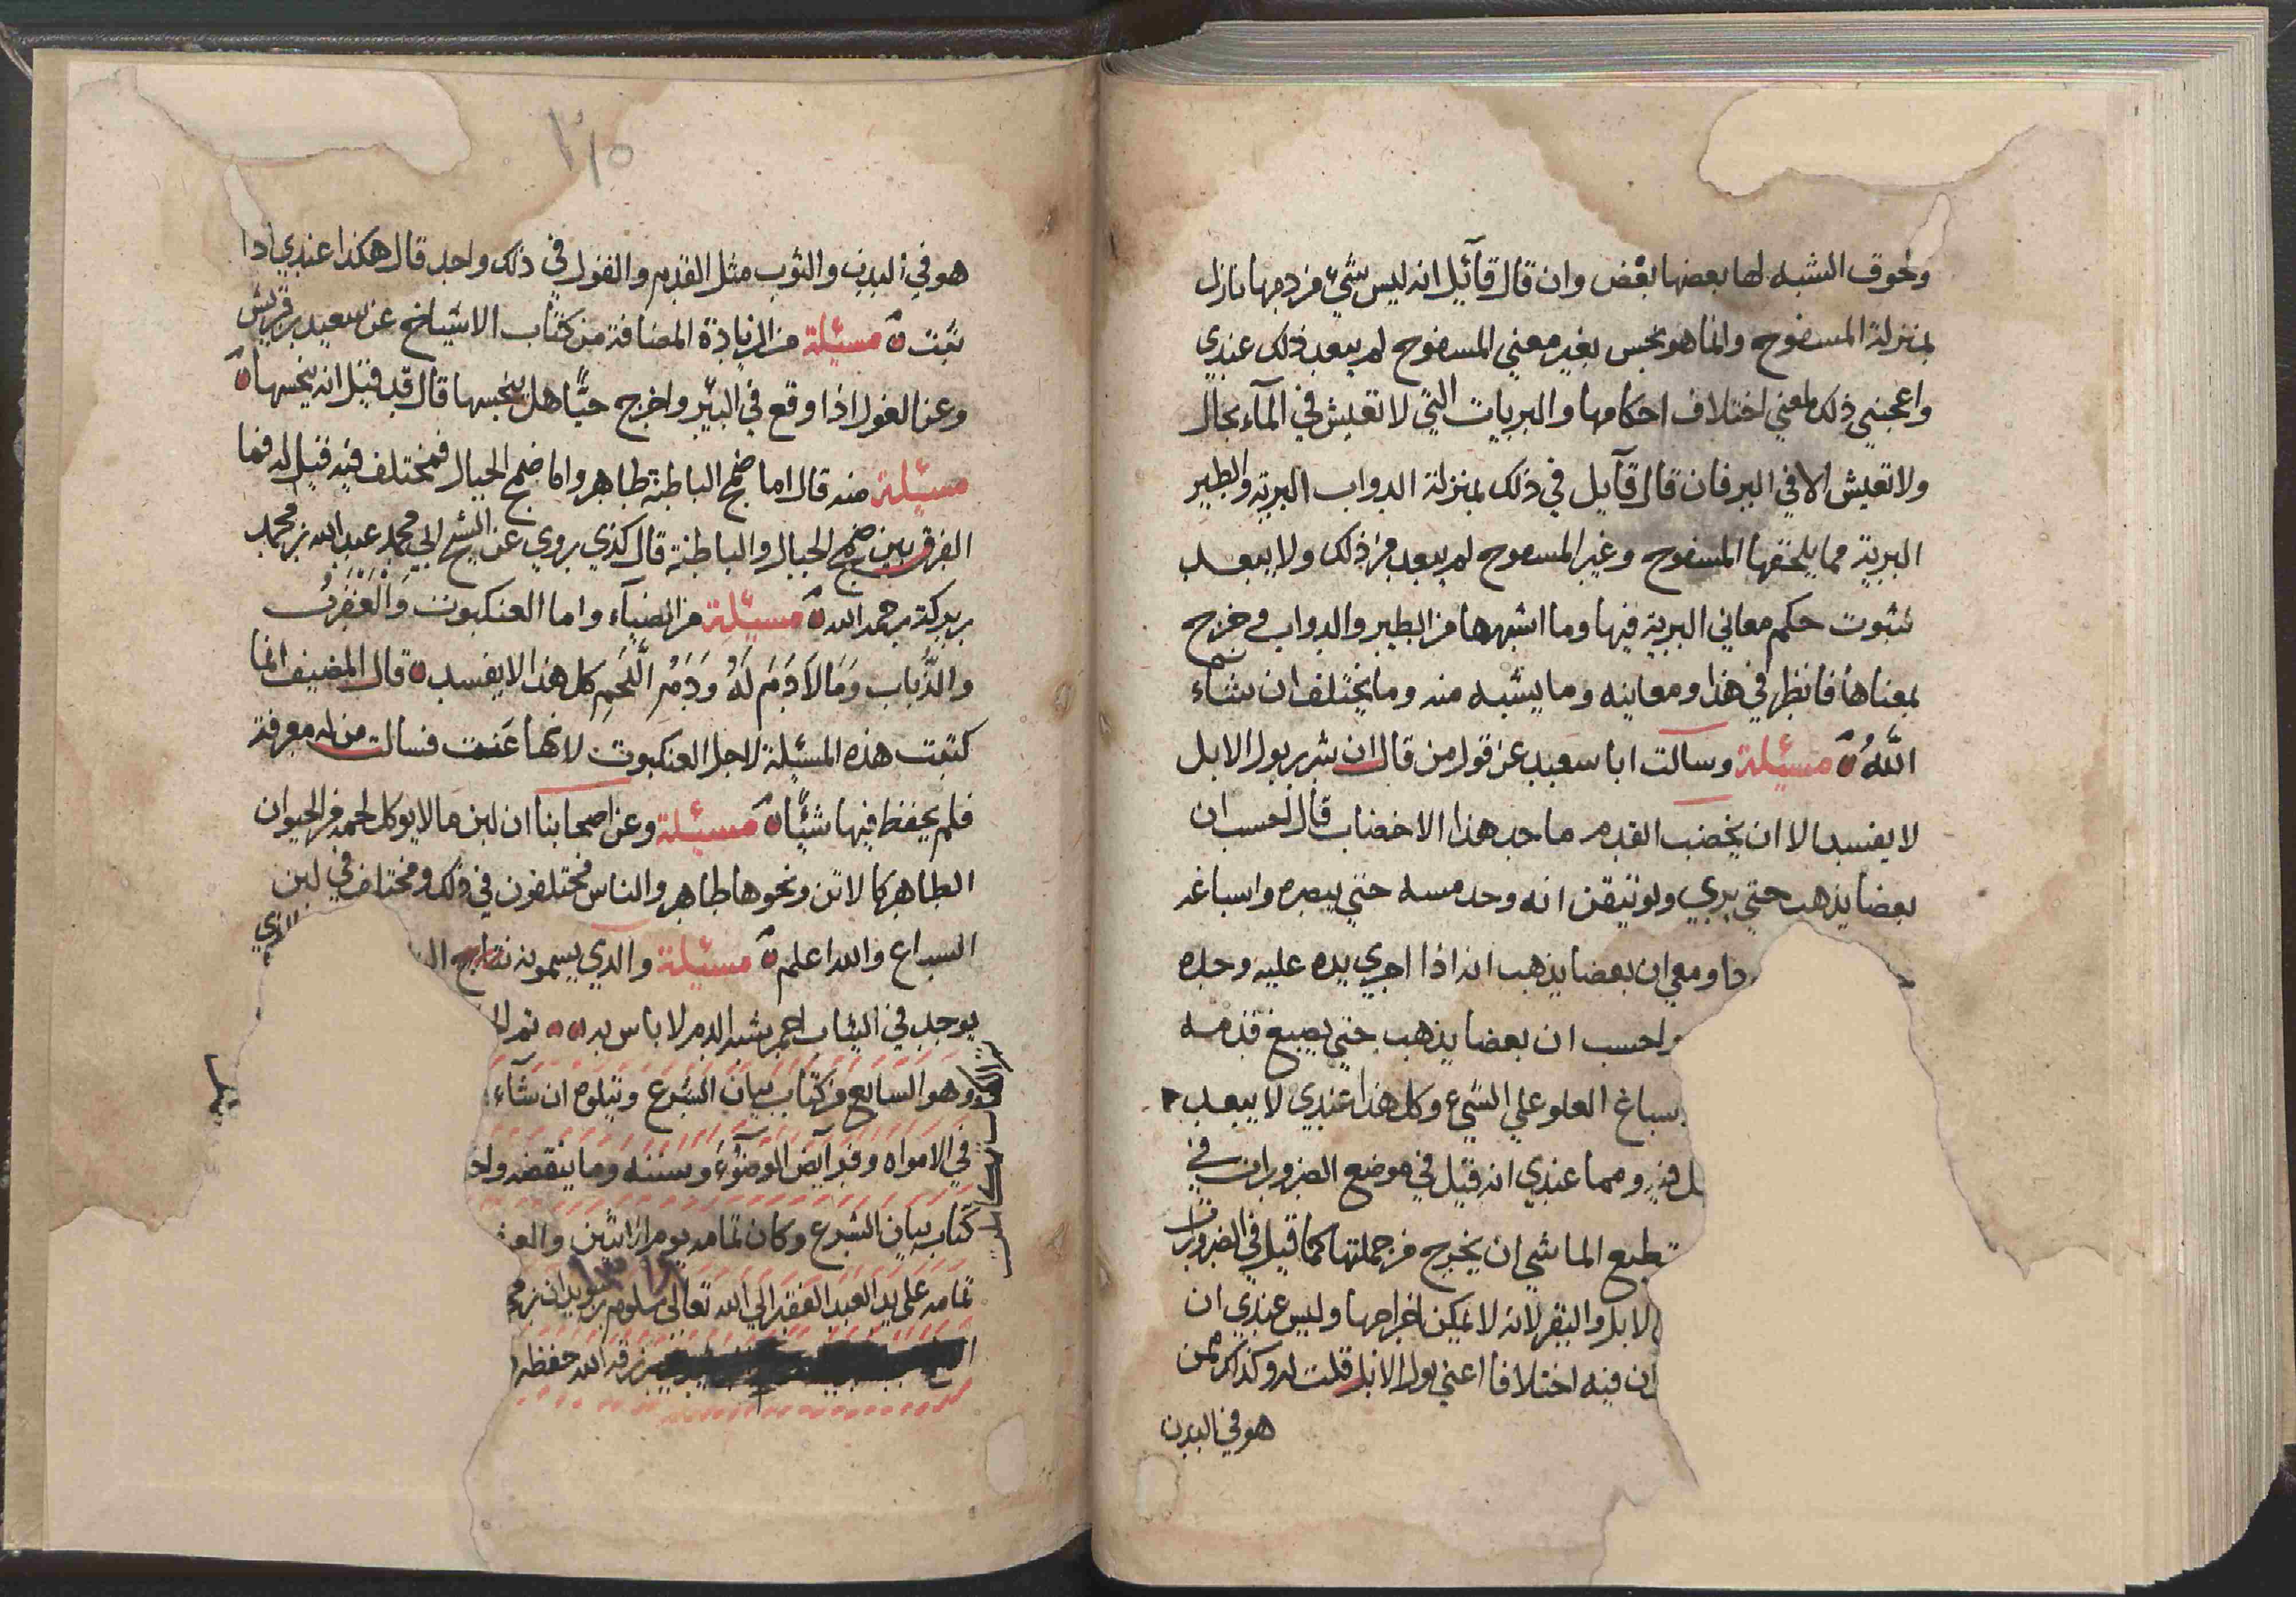 ولحوق الشبه لها بعضها بعض وان قال قآئل انه ليس شيء من دمها نازل
بمنزلة المسفوح وانما هو نجس بغير معني المسفوح لم يبعد ذلك عندي
واعجبني ذلك لمعني اختلاف احكامها والبريات التي لا تعيش في المآء بحال
ولا تعيش الا في البر فان قال قآيل في ذلك بمنزلة الدواب البرية والطير
البرية مما يلحقها المسفوح وغير المسفوح لم يبعد من ذلك ولا يبعد
ثبوت حكم معاني البرية فيها وما اشبهها من الطير والدواب في خرج
بمعناها فانظر في هذا ومعانيه وما يشبه منه وما يختلف ان شآء
اللهُ ه مسئلة وسالت ابا سعيد عن قول من قال ان شرر بول الابل
لا يفسد الا ان يخضب القدم ما حد هذا الاخضاب قال احسب ان
بعضا يذهب حتي يري ولو تيقن انه وجد مسه حتي يبصره واسباغه
ومعي ان بعضا يذهب انه اذا اجري يده عليه وجده
واحسب ان بعضا يذهب حتي يصبغ قدمه
سباغ العلو علي الشيء وكل هذا عندي لا يبعد
ومما عندي انه قيل في موضع الضرورات في
تطيع الماشي ان يخرج من جملتها كما قيل في الضرورات
لابل والبقر لانه لا يمكن اخراجها وليس عندي ان
ان فيه اختلافا اعني بول الابل قلت له وكذلك ممن
هو في البدن
٢١٥
هو في البدن والثوب مثل القدم والقول في ذلك واحد قال هكذا عندي اذا
ثبت ه مسئلة من الزيادة المضافة من كتاب الاشياخ عن سعيد بن قريش
وعن الغول اذا وقع في البئر واخرج حيًّا هل ينجسها قال قد قيل انه ينجسها ه
مسئلة منه قال اما ضمج الباطنة طاهر واما ضمج الجبال فمختلف فيه قيل له فما
الفرق بين ضمج الجبال والباطنة قال كذي يروي عن الشيخ ابي محمد عبد الله بن محمد
بن بركة رحمه الله ه مسئلة من الضيآء واما العنكبوت والعقرب
والذُّباب وَمَا لاَ دَمَ لَهُ وَدَمُ اللَّحمِ كل هذا لا يفسد ه قال المضيف انما
كتبت هذه المسئلة لاجل العنكبوت لانها عَنت فسالت من له معرفة
فلم يحفظ فيها شيئًا ه مسئلة وعن اصحابنا ان لبن ما لا يوكل لحمه من الحيوان
الطاهر كالاتن ونحوها طاهر والناس مختلفون في ذلك ومختلف في لبن
السباع والله اعلم ه مسئلة والذي يسمونه نتاج الن الذي
يوجد في الثياب احمر يشبه الدم لا باس به ه ه تم الـ
وهو السابع من كتاب بيان الشرع ويتلوه ان شآء
في الامواه وفرآيض الوضوء وسننه وما ينقضه
كتاب بيان الشرع وكان تمامه يوم الاثنين
تمامه على يد العبد الفقير الي الله تعالى
رزقه الله حفظه